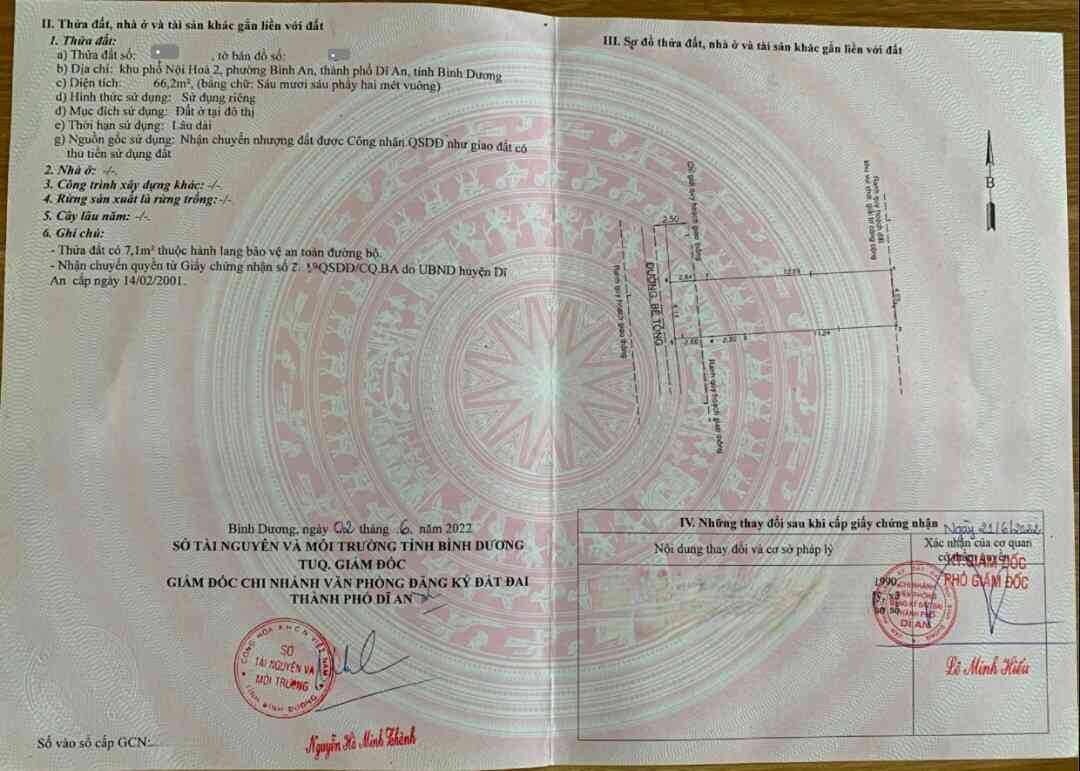 II. Thửa đất, nhà ở và tài sản khác gắn liền với đất
1. Thửa đất:
a) Thửa đất số: , tờ bản đồ số:
b) Địa chỉ: khu phố Nội Hoá 2, phường Bình An, thành phố Dĩ An, tỉnh Bình Dương
c) Diện tích: 66,2m², (bằng chữ: Sáu mươi sáu phẩy hai mét vuông)
d) Hình thức sử dụng: Sử dụng riêng
đ) Mục đích sử dụng: Đất ở tại đô thị
e) Thời hạn sử dụng: Lâu dài
g) Nguồn gốc sử dụng: Nhận chuyển nhượng đất được Công nhận QSDĐ như giao đất có
thu tiền sử dụng đất
2. Nhà ở: -/-.
3. Công trình xây dựng khác: -/-.
4. Rừng sản xuất là rừng trồng: -/-.
5. Cây lâu năm: -/-.
6. Ghi chú:
- Thửa đất có 7,1m² thuộc hành lang bảo vệ an toàn đường bộ.
- Nhận chuyển quyền từ Giấy chứng nhận số QSDĐ/CQ.BA do UBND huyện Dĩ
An cấp ngày 14/02/2001.
Bình Dương, ngày 02 tháng 6 năm 2022
SỞ TÀI NGUYÊN VÀ MÔI TRƯỜNG TỈNH BÌNH DƯƠNG
TUQ. GIÁM ĐỐC
GIÁM ĐỐC CHI NHÁNH VĂN PHÒNG ĐĂNG KÝ ĐẤT ĐAI
THÀNH PHỐ DĨ AN
CỘNG HÒA X.H.C.N VIỆT NAM
SỞ
TÀI NGUYÊN VÀ
MÔI TRƯỜNG
TỈNH BÌNH DƯƠNG
Nguyễn Hồ Minh Thành
Số vào sổ cấp GCN:
III. Sơ đồ thửa đất, nhà ở và tài sản khác gắn liền với đất
B
Chỉ giới quy hoạch giao thông
Ranh quy hoạch đất
khu vui chơi giải trí công cộng
2.50
ĐƯỜNG BÊ TÔNG
Ranh quy hoạch giao thông
2.64
Ranh quy hoạch giao thông
IV. Những thay đổi sau khi cấp giấy chứng nhận
Nội dung thay đổi và cơ sở pháp lý
Ngày 21/6/2022
Xác nhận của cơ quan
có thẩm quyền
KT.GIÁM ĐỐC
PHÓ GIÁM ĐỐC
1990
CHI NHÁNH
VĂN PHÒNG
ĐĂNG KÝ ĐẤT ĐAI
THÀNH PHỐ
DĨ AN
Lê Minh Hiếu